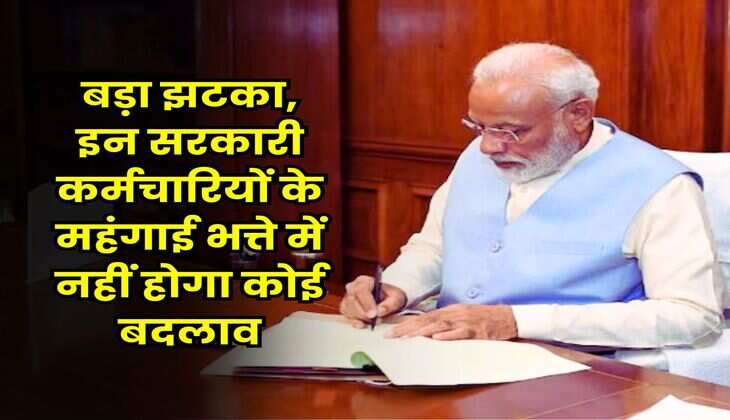 बड़ा झटका,
इन सरकारी
कर्मचारियों के
महंगाई भत्ते में
नहीं होगा कोई
बदलाव